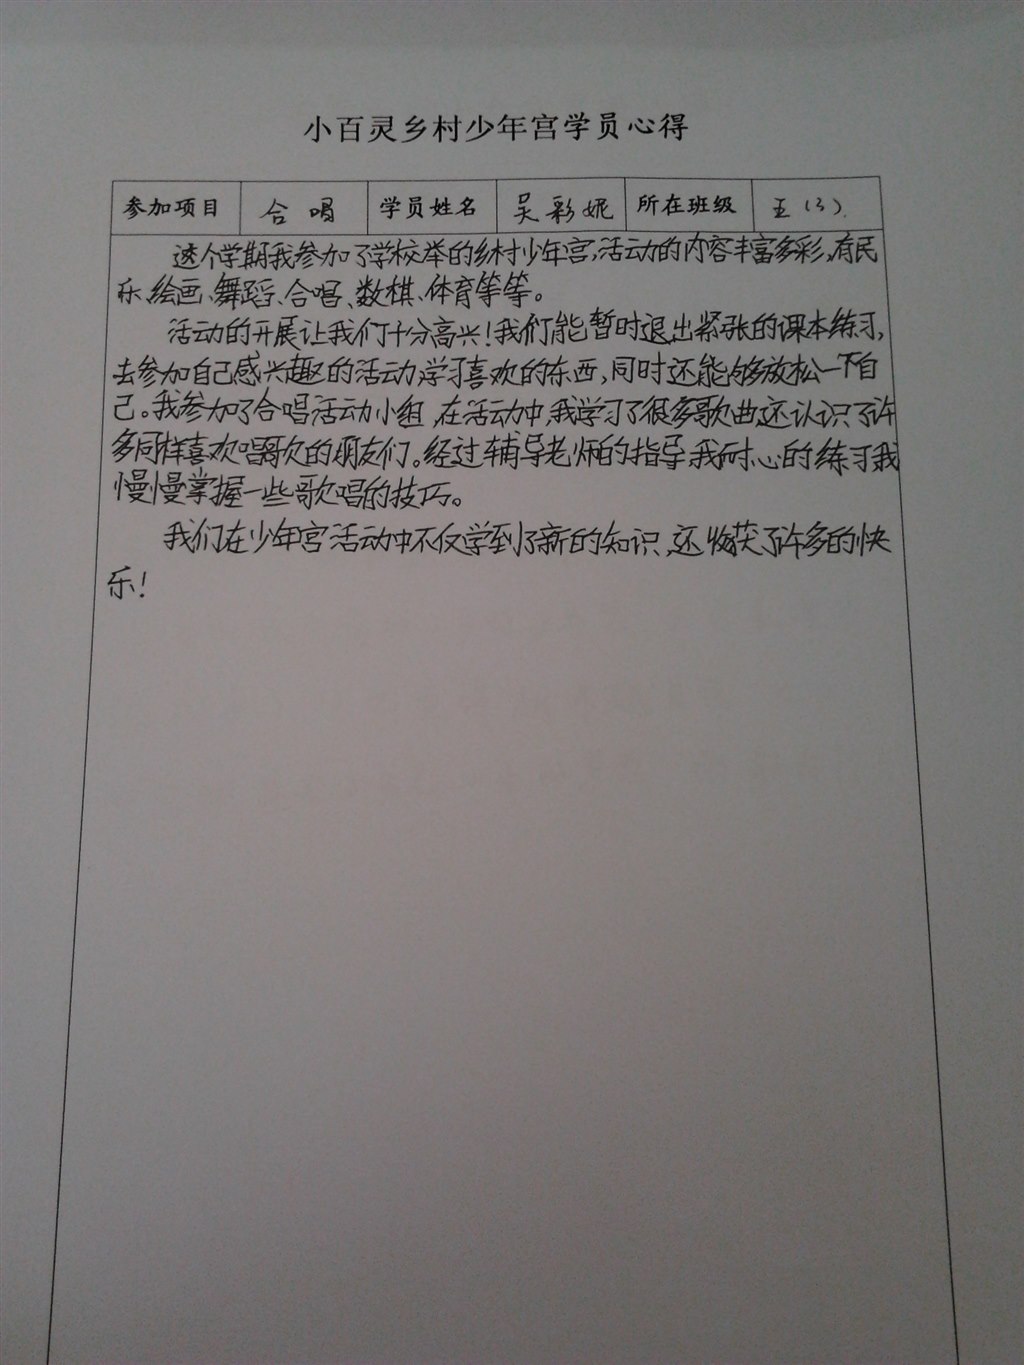 小百灵乡村少年宫学员心得
参加项目 合唱 学员姓名 吴彩妮 所在班级 五(3)
这个学期我参加了学校举的乡村少年宫,活动的内容丰富多彩,有民
乐、绘画、舞蹈、合唱、数棋、体育等等。
活动的开展让我们十分高兴!我们能暂时退出紧张的课本练习,
去参加自己感兴趣的活动,学习喜欢的东西,同时还能够放松一下自
己。我参加了合唱活动小组,在活动中,我学习了很多歌曲,还认识了许
多同样喜欢唱歌的朋友们。经过辅导老师的指导,我耐心的练习,我
慢慢掌握一些歌唱的技巧。
我们在少年宫活动中不仅学到了新的知识,还收获了许多的快
乐!